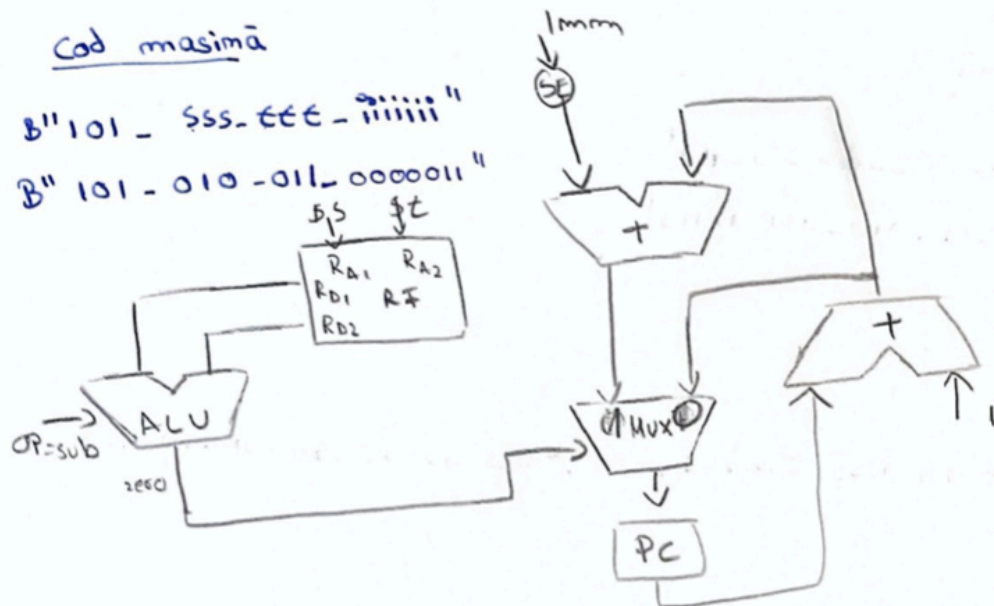 Cod masimã
B"101_ sss_ttt_iiiiiii"
B"101_010_011_0000011"
Imm
SE
+
$s $t
RA1 RA2
RD1 RF
RD2
+
1
ALU
OP=sub
zero
1 MUX 0
PC